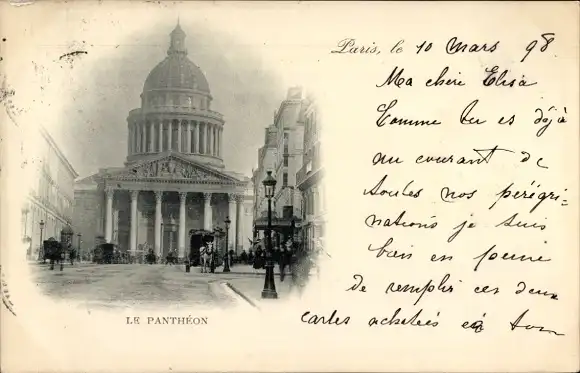 Paris, le 10 mars 98
Ma chère Elisa
Comme tu es déjà
au courant de
toutes nos pérégri-
nations je suis
bien en peine
de remplir ces deux
cartes achetées
LE PANTHÉON